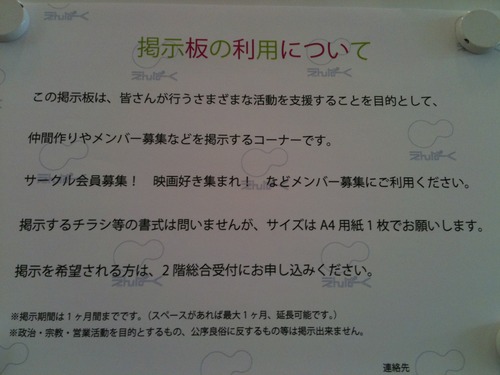 掲示板の利用について
この掲示板は、皆さんが行うさまざまな活動を支援することを目的として、
仲間作りやメンバー募集などを掲示するコーナーです。
サークル会員募集！　映画好き集まれ！　などメンバー募集にご利用ください。
掲示するチラシ等の書式は問いませんが、サイズは A4 用紙 1 枚でお願いします。
掲示を希望される方は、2 階総合受付にお申し込みください。
※掲示期間は 1 ヶ月間までです。（スペースがあれば最大 1 ヶ月、延長可能です。）
※政治・宗教・営業活動を目的とするもの、公序良俗に反するもの等は掲示出来ません。
連絡先